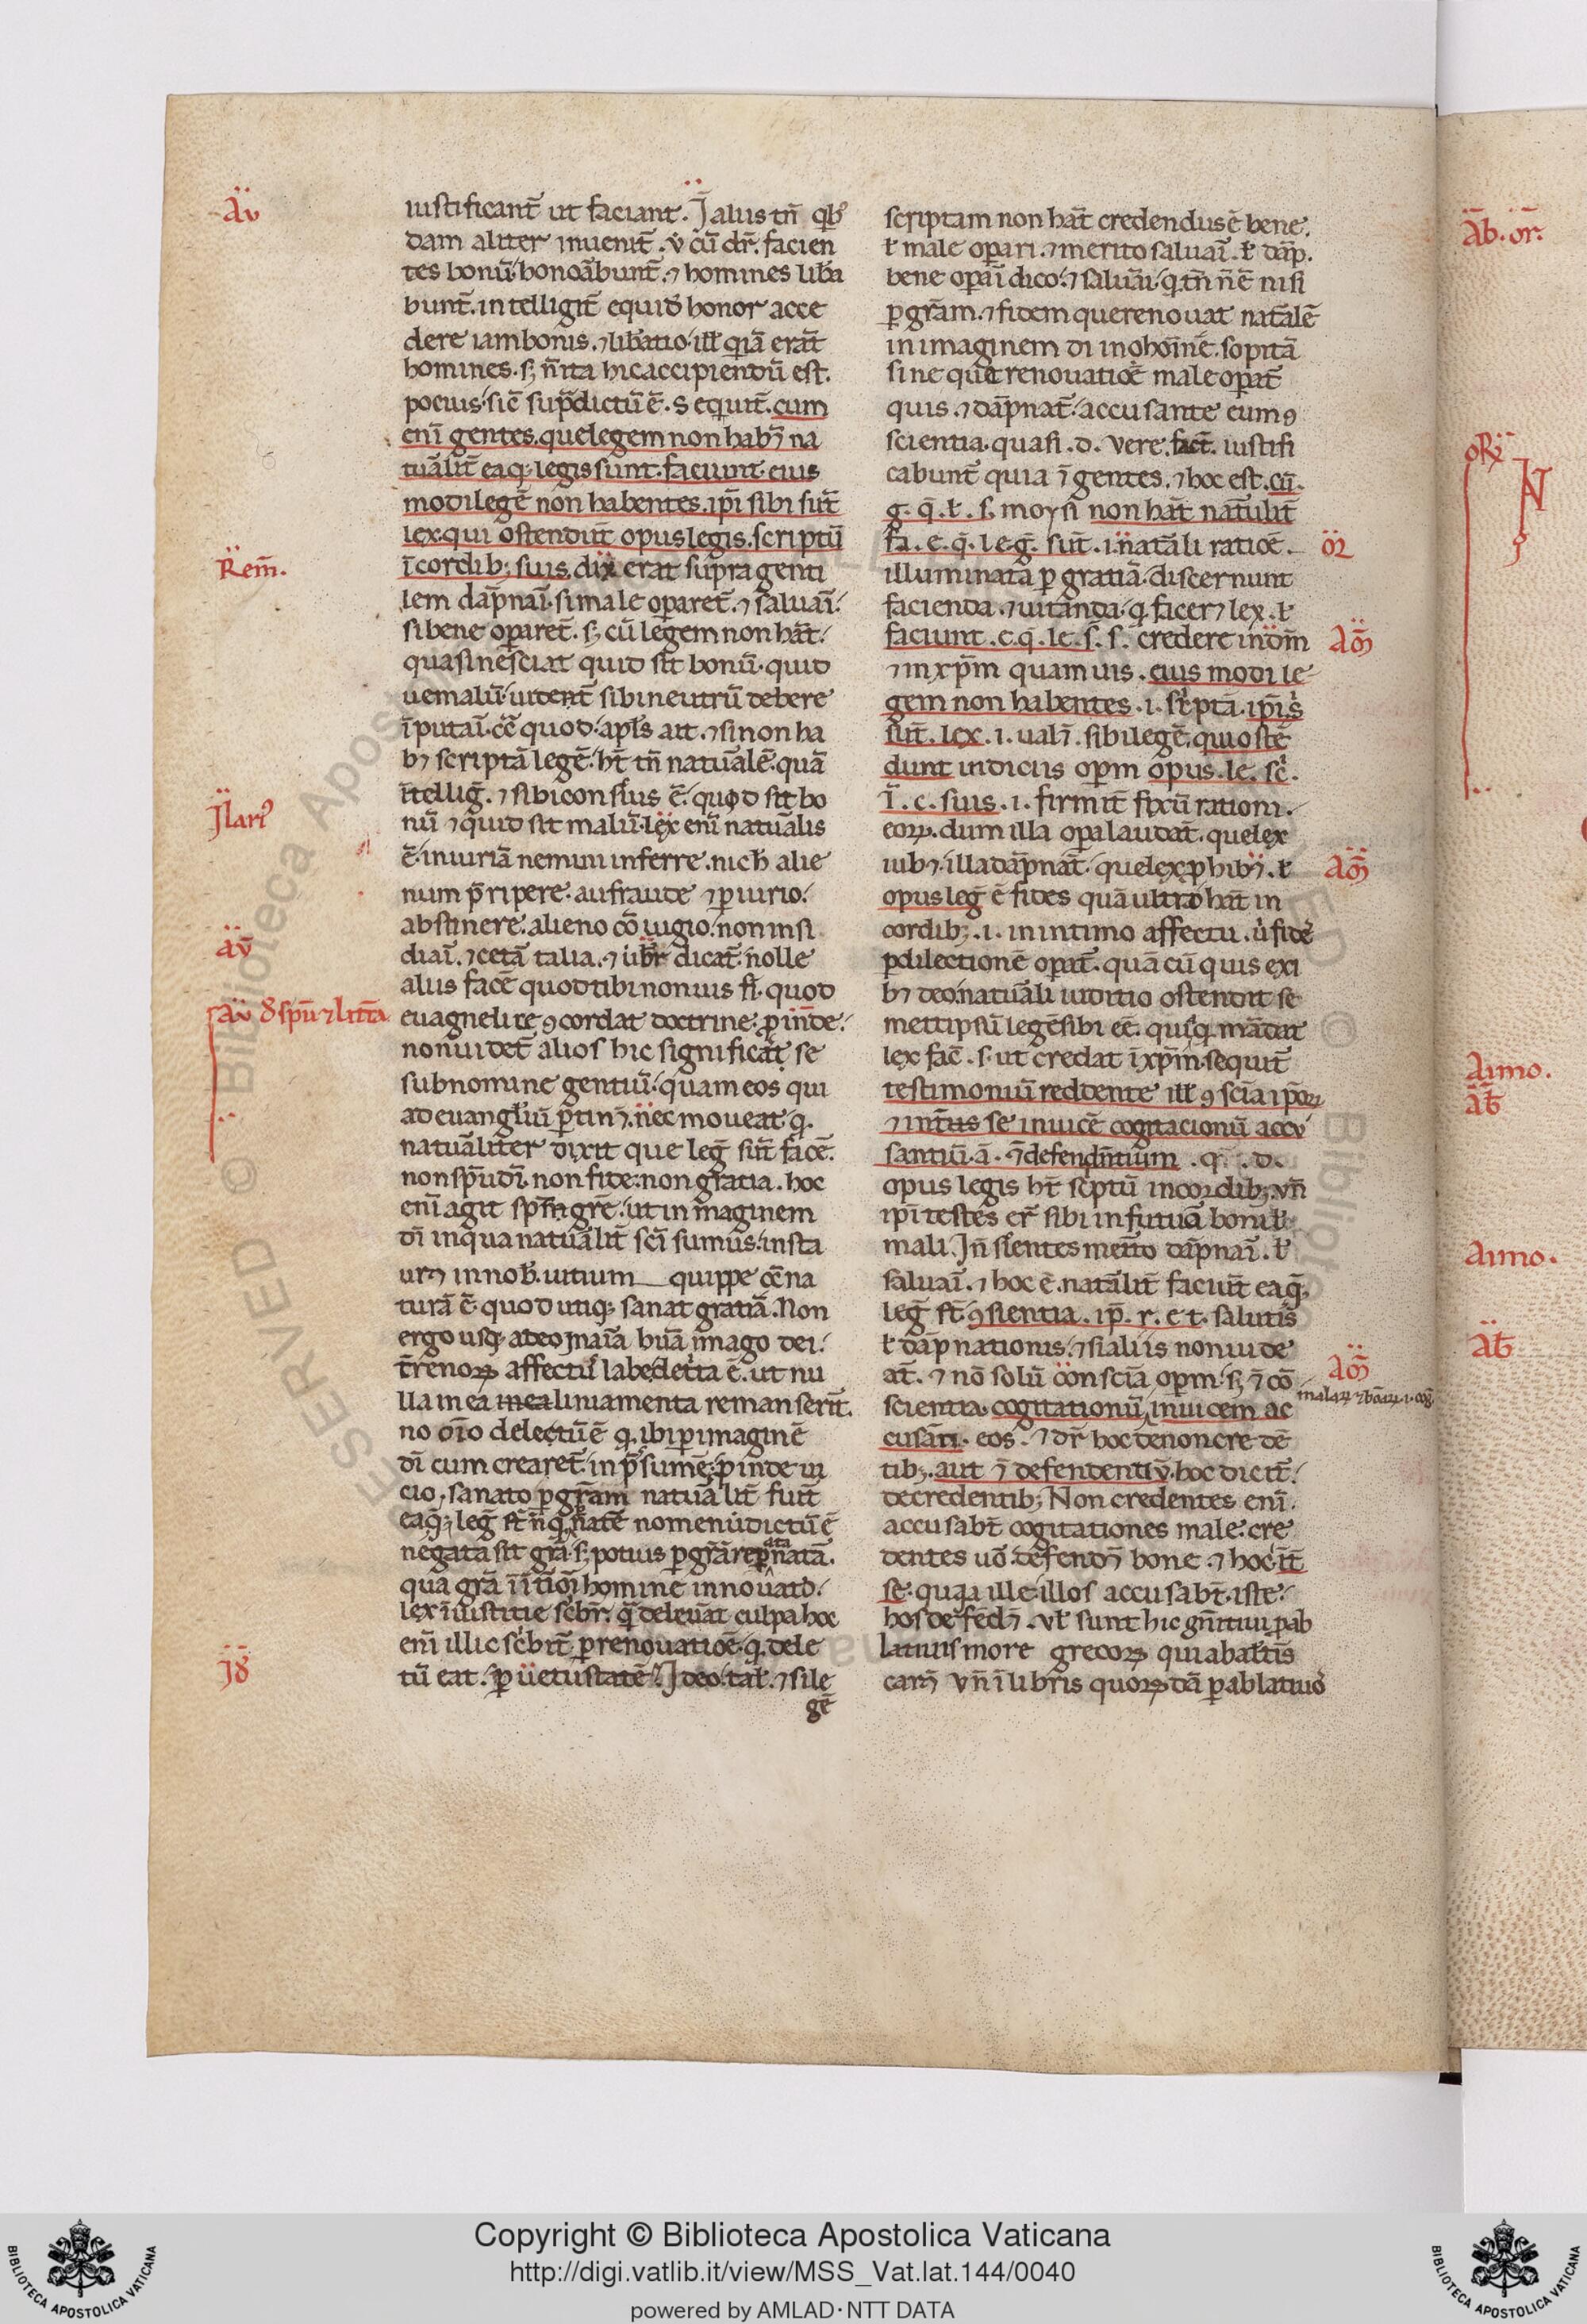 Aῡ
iustificant̄ ut faciant. J alus tn̄ qb᷒
dam aliter inuenit̄. v̄ cū dr̄. facien
tes bonū honorabunt̄. ⁊ homines libā
bunt̄. intelligit̄ equid̄ honor acce
dere iam bonis. ⁊ libatio ill' q̄ iā erāt
homines. s; n̄ ita hic accipiendū est.
pocius sic̄ sup̄dictū ē. Sequit̄. cum
enī gentes. que legem non hab⁊ na
tuālit̄ ea q; legis sunt. faciunt eius
modi legē non habentes. ipī sibi sūt
lex. qui ostendūt opus legis. scriptū
ī cordib; suis. dix erat supra genti
Rem̄.
lem dāpnaī. si male opareť. ⁊ saluaī.
si bene opareť. s; cū legem non hāt
quasi nesciat quid sit bonū. quid
ue malū. uident̄ sibi neutrū debere
īputaī. c̄ē quod apl's ait. ⁊ si non ha
b⁊ scriptā legē. ht̄ tn̄ natuālē. quā
ītelliḡ. ⁊ sibi conscius ē. quod sit bo
Jlari᷒
nū ⁊ quid sit malū. lex enī natuālis
ē. iniuriā nemini inferre. nich' alie
num p̄ripere. a fraude ⁊ piurio
abstinere. alieno cōiugio. non insi
Aῡ
diaī. ⁊ cetā talia. ⁊ ūbr̄ dicat̄. nolle
alus facē quod tibi non uis fī. quod
Aῡ δ spū ⁊ littā
euagnelice ꝯcordat doctrine. pinde.
non uidet̄ alios hic significāt se
sub nomine gentiū. quam eos qui
ad euangl'iū ptin⁊. nec moueat q.
natuāliter dixit que leḡ sūt facē.
non spū dī. non fide. non gratia. hoc
enī agit sps̄ grē. ut in imaginem
dī in qua natuālit̄ fcī sumus. insta
ur⁊ in nob'. uitium quippe ꝯ̄na
turā ē. quod utiq; sanat gratiā. Non
ergo usq; adeo in aīa huā imago dei.
t̄renoꝝ affectū labe detita ē. ut nu
lla in ea mea liniamenta remanserīt.
no oīo delectū ē q. ibi p imaginē
dī cum crearet̄. inp̄sum ē. pinde ui
cio, sanato p grām natuālit̄ fiūt
ea q; leḡ st̄. n̄ q, natē nomen ūdictū ē
negata sit grā. s; potius p grā repnatā.
qua grā ī ītiōī homine innouato.
lex iustitie scbr̄. q̄ deleuat culpa hoc
enī illic scbit̄ p renouatioē. q. dele
Jδ̄
tū eat. p uetustatē. J deo. tal'. ⁊ si le
gē
scriptam non hāt credendus ē bene.
ł male opari. ⁊ merito saluaī. ł dāp.
bene opaī dico. ⁊ saluāi. q. tn̄ n̄ ē nisi
p grām. ⁊ fidem que renouat natālē
in imaginem dī in q hoīnē. sopitā
sine que renouatioē male opat̄
quis. ⁊ dāpnat̄. accusante eum ꝯ
scientia. quasi. d. Vere. fact̄. iustifi
cabunt̄ quia ⁊ gentes. ⁊ hoc est. cū.
g. q̄. ł. s. moysi non hāt natūlit̄
fa. e. q̄. leḡ. sūt. i. natāli ratioē.
ōr
illuminata p gratiā. discernunt
facienda. ⁊ uitanda. q. facer⁊ lex. ł
faciunt. e. q. le. s̄. s. credere in dm̄
Aō̄
⁊ in xpm̄ quam uis. eius modi le
gem non habentes. i. scīptā. ipī. s
sūt. lex. i. ual⁊. sibi legē. qui ostē
dunt indiciis opm opus. le. sc̄.
ī. c. suis. i. firmit̄ fixū rationi.
eoꝝ. dum illa opa laudat̄. que lex
iub⁊. illa dāpnat̄. que lex phib⁊. ł
Aō̄
opus leḡ ē fides quā ultro hāt in
cordib;. i. in intimo affectu. u' fide
p dilectionē opat̄. quā cū quis exi
b⁊ deo. natuāli iuditio ostendit se
met ipsū legē sibi eē. qui q, mādat
lex facē. s. ut credat ī xpm̄. sequit̄
testimoniū reddente ill' ꝯscīa ipoꝝ
⁊ int̄us se inuicē cogitacionū accu
santiū. a. ⁊ defendentium. q. d.
opus legis ht̄ scptū in cordib; vn̄
ipī testes er̄ sibi in futuā boni ł
mali. Jn̄ scientes merito dāpnaī. ł
saluaī. ⁊ hoc ē. natālit̄ faciūt ea q̄.
leḡ st̄. ꝯsientia. ip̄. r. e t. salutis
ł dāpnationis. ⁊ si aliis non uide
at̄. ⁊ nō solū conscīa opm. s; ⁊ cō
Aō̄
malaꝝ ⁊ bonaꝝ. i. coḡ.
scientia cogitationū inuicem ac
cusāti. eos. ⁊ dr̄ hoc de non crede
tib;. aut ⁊ defendentiū. hoc dicit̄.
de credentib; Non credentes enī.
accusabt̄ cogitationes male. cre
dentes uō. defend⁊ bone. ⁊ hoc īt̄
se. quia ille illos accusabt̄. iste
hos defēd⁊. vł sunt hic gn̄itiui p ab
latiuis more grecoꝝ qui ablatis
car⁊ vn̄ ī libris quoꝝdā p ablatiuo
Āb. or̄.
ORI
N
Aimo.
Āb
Aimo.
Āb
Copyright © Biblioteca Apostolica Vaticana
http://digi.vatlib.it/view/MSS_Vat.lat.144/0040
powered by AMLAD·NTT DATA
BIBLIOTECA APOSTOLICA VATICANA
BIBLIOTECA APOSTOLICA VATICANA